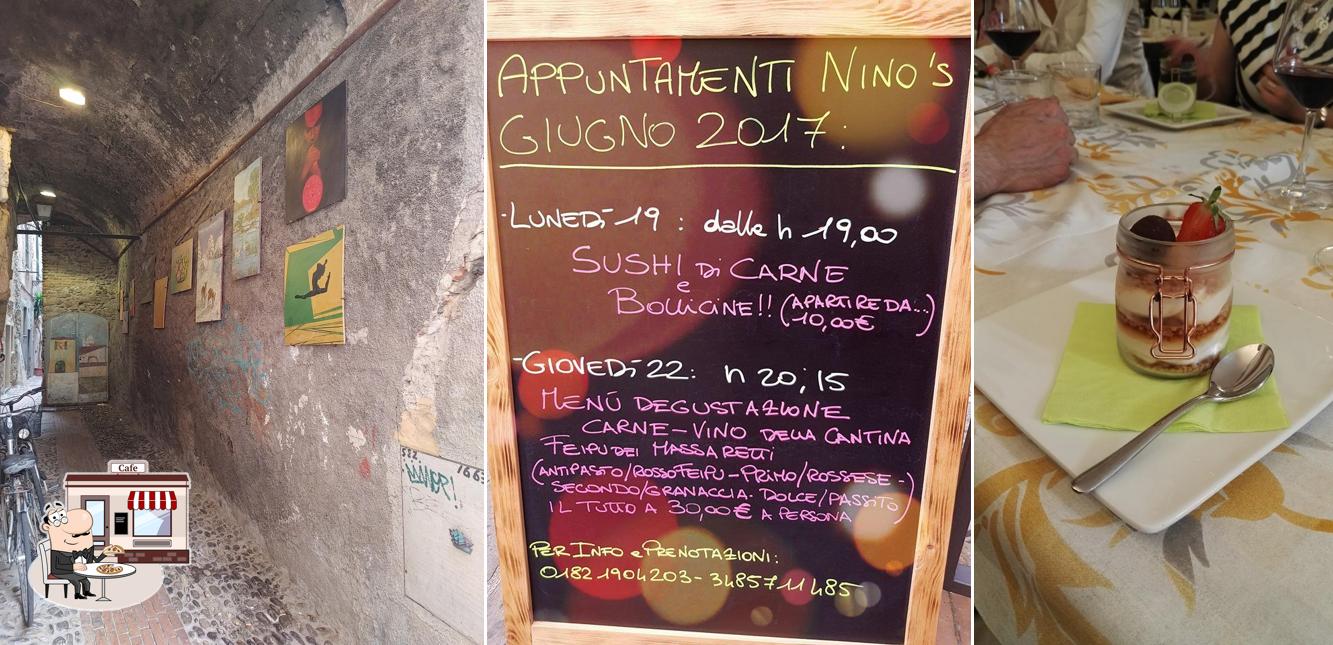 Cafe
522
1663
APPUNTAMENTI NINO'S
GIUGNO 2017:
-LUNEDÌ 19 : dalle h 19,00
SUSHI Di CARNE
e
BolliCiNE!! (A PARTIRE DA...)
10,00€
-GIOVEDÌ 22: h 20,15
MENÙ DEGUSTAZIONE
CARNE-VINO DELLA CANTINA
FEIPU DEI MASSARETTI
(ANTIPASTO/ROSSO FEIPU-PRIMO/ROSSESE-
SECONDO/GRANACCIA-DOLCE/PASSITO)
IL TUTTO A 30,00€ A PERSONA
PER INFO e PRENOTAZIONI:
0182 1904203-3485711485